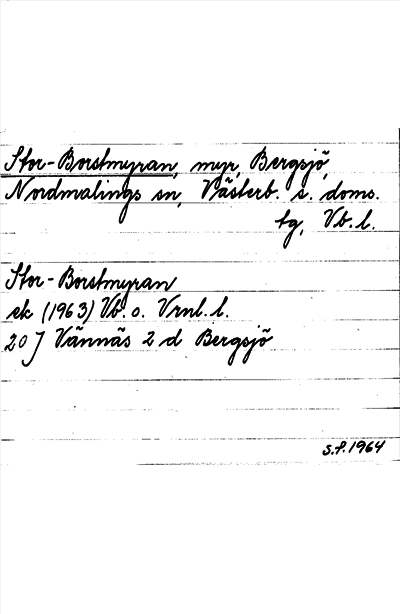 Stor-Borstmyran, myr, Bergsjö,
Nordmalings sn, Västerb. s. doms.
tg, Vb. l.
Stor-Borstmyran
ek (1963) Vb. o. Vrml. l.
20 J Vännäs 2 d Bergsjö
S.F. 1964